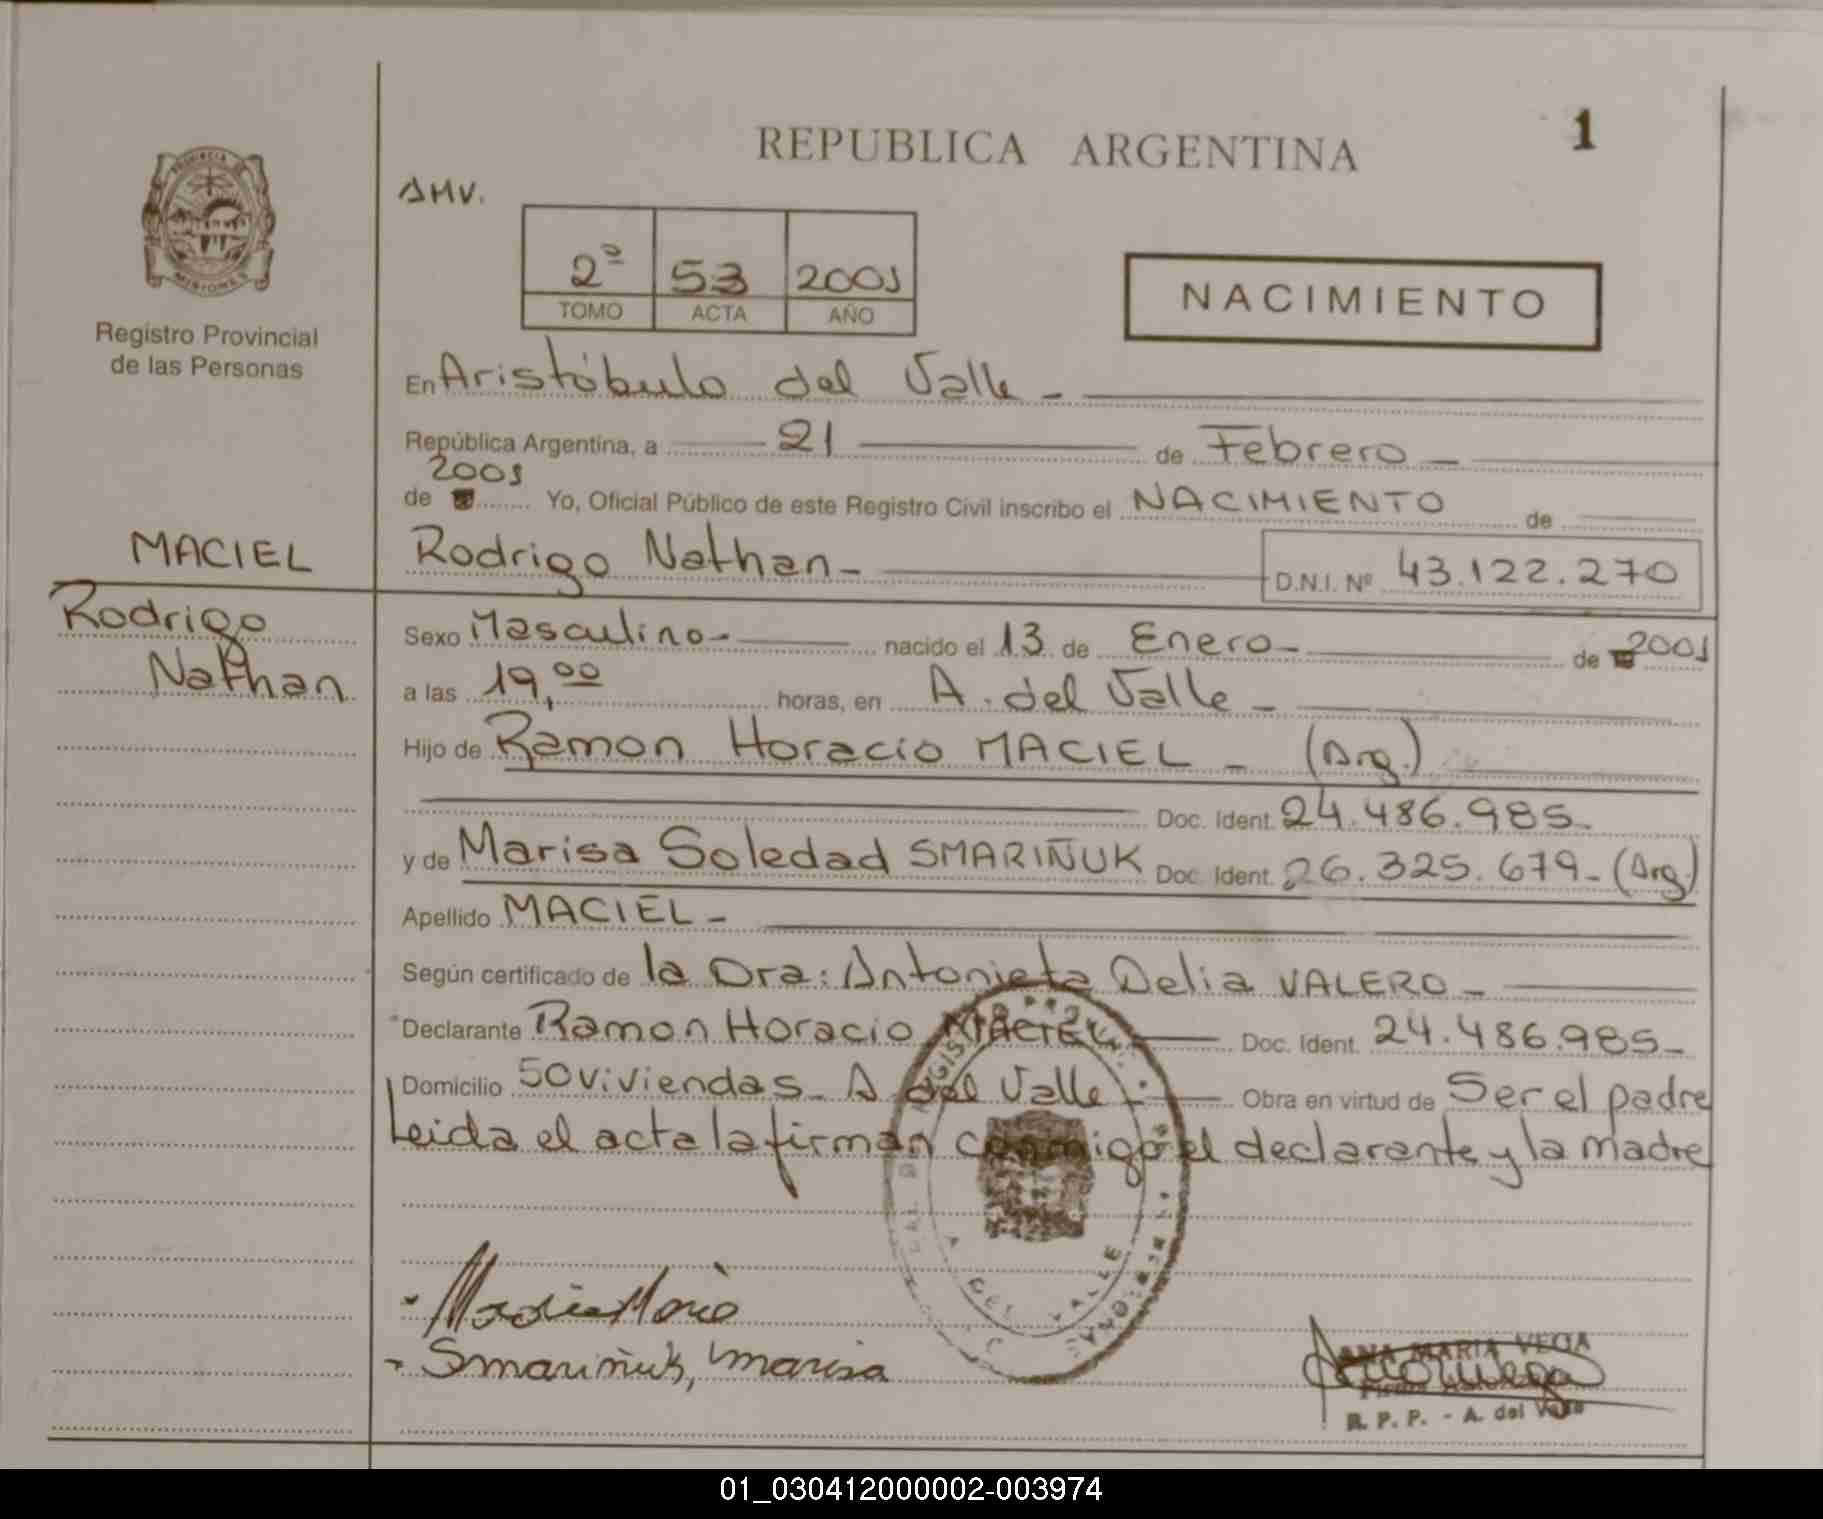 REPUBLICA ARGENTINA
1
PROVINCIA DE
MISIONES
Registro Provincial
de las Personas
AMV.
2º 53 2001
TOMO ACTA AÑO
NACIMIENTO
En Aristóbulo del Valle -
República Argentina, a 21 de Febrero -
2001
de Yo, Oficial Público de este Registro Civil inscribo el NACIMIENTO de
MACIEL
Rodrigo Nathan - D.N.I. Nº 43.122.270
Rodrigo
Nathan
Sexo Masculino - nacido el 13 de Enero - de 2001
a las 19,00 horas, en A. del Valle -
Hijo de Ramon Horacio MACIEL - (Arg.)
Doc. Ident. 24.486.985-
y de Marisa Soledad SMARIÑUK Doc. Ident. 26.325.679- (Arg)
Apellido MACIEL -
Según certificado de la Dra: Antonieta Delia VALERO -
Declarante Ramon Horacio MACIEL Doc. Ident. 24.486.985-
Domicilio 50 viviendas - A del Valle - Obra en virtud de Ser el padre
Leida el acta la firman conmigo el declarante y la madre
A. DEL VALLE
Smariñuk, marisa
ANA MARIA VEGA
R. P. P. - A. del Valle
01_030412000002-003974